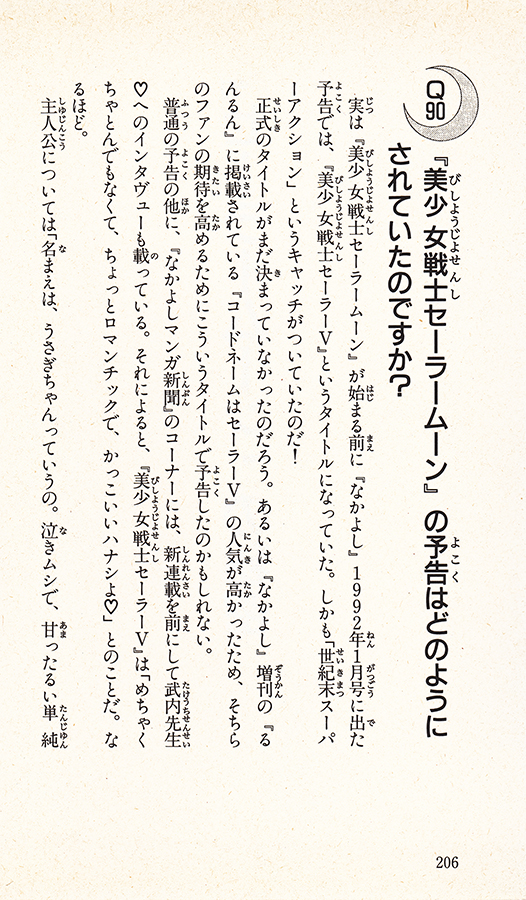 Q
90
『美少女戦士セーラームーン』の予告はどのように
されていたのですか？
実は『美少女戦士セーラームーン』が始まる前に『なかよし』1992年1月号に出た
予告では、『美少女戦士セーラーV』というタイトルになっていた。しかも「世紀末スーパ
ーアクション」というキャッチがついていたのだ！
正式のタイトルがまだ決まっていなかったのだろう。あるいは『なかよし』増刊の『る
んるん』に掲載されている『コードネームはセーラーV』の人気が高かったため、そちら
のファンの期待を高めるためにこういうタイトルで予告したのかもしれない。
普通の予告の他に、『なかよしマンガ新聞』のコーナーには、新連載を前にして武内先生
♡へのインタヴューも載っている。それによると、『美少女戦士セーラーV』は「めちゃく
ちゃとんでもなくて、ちょっとロマンチックで、かっこいいハナシよ♡」とのことだ。な
るほど。
主人公については「名まえは、うさぎちゃんっていうの。泣きムシで、甘ったるい単純
206